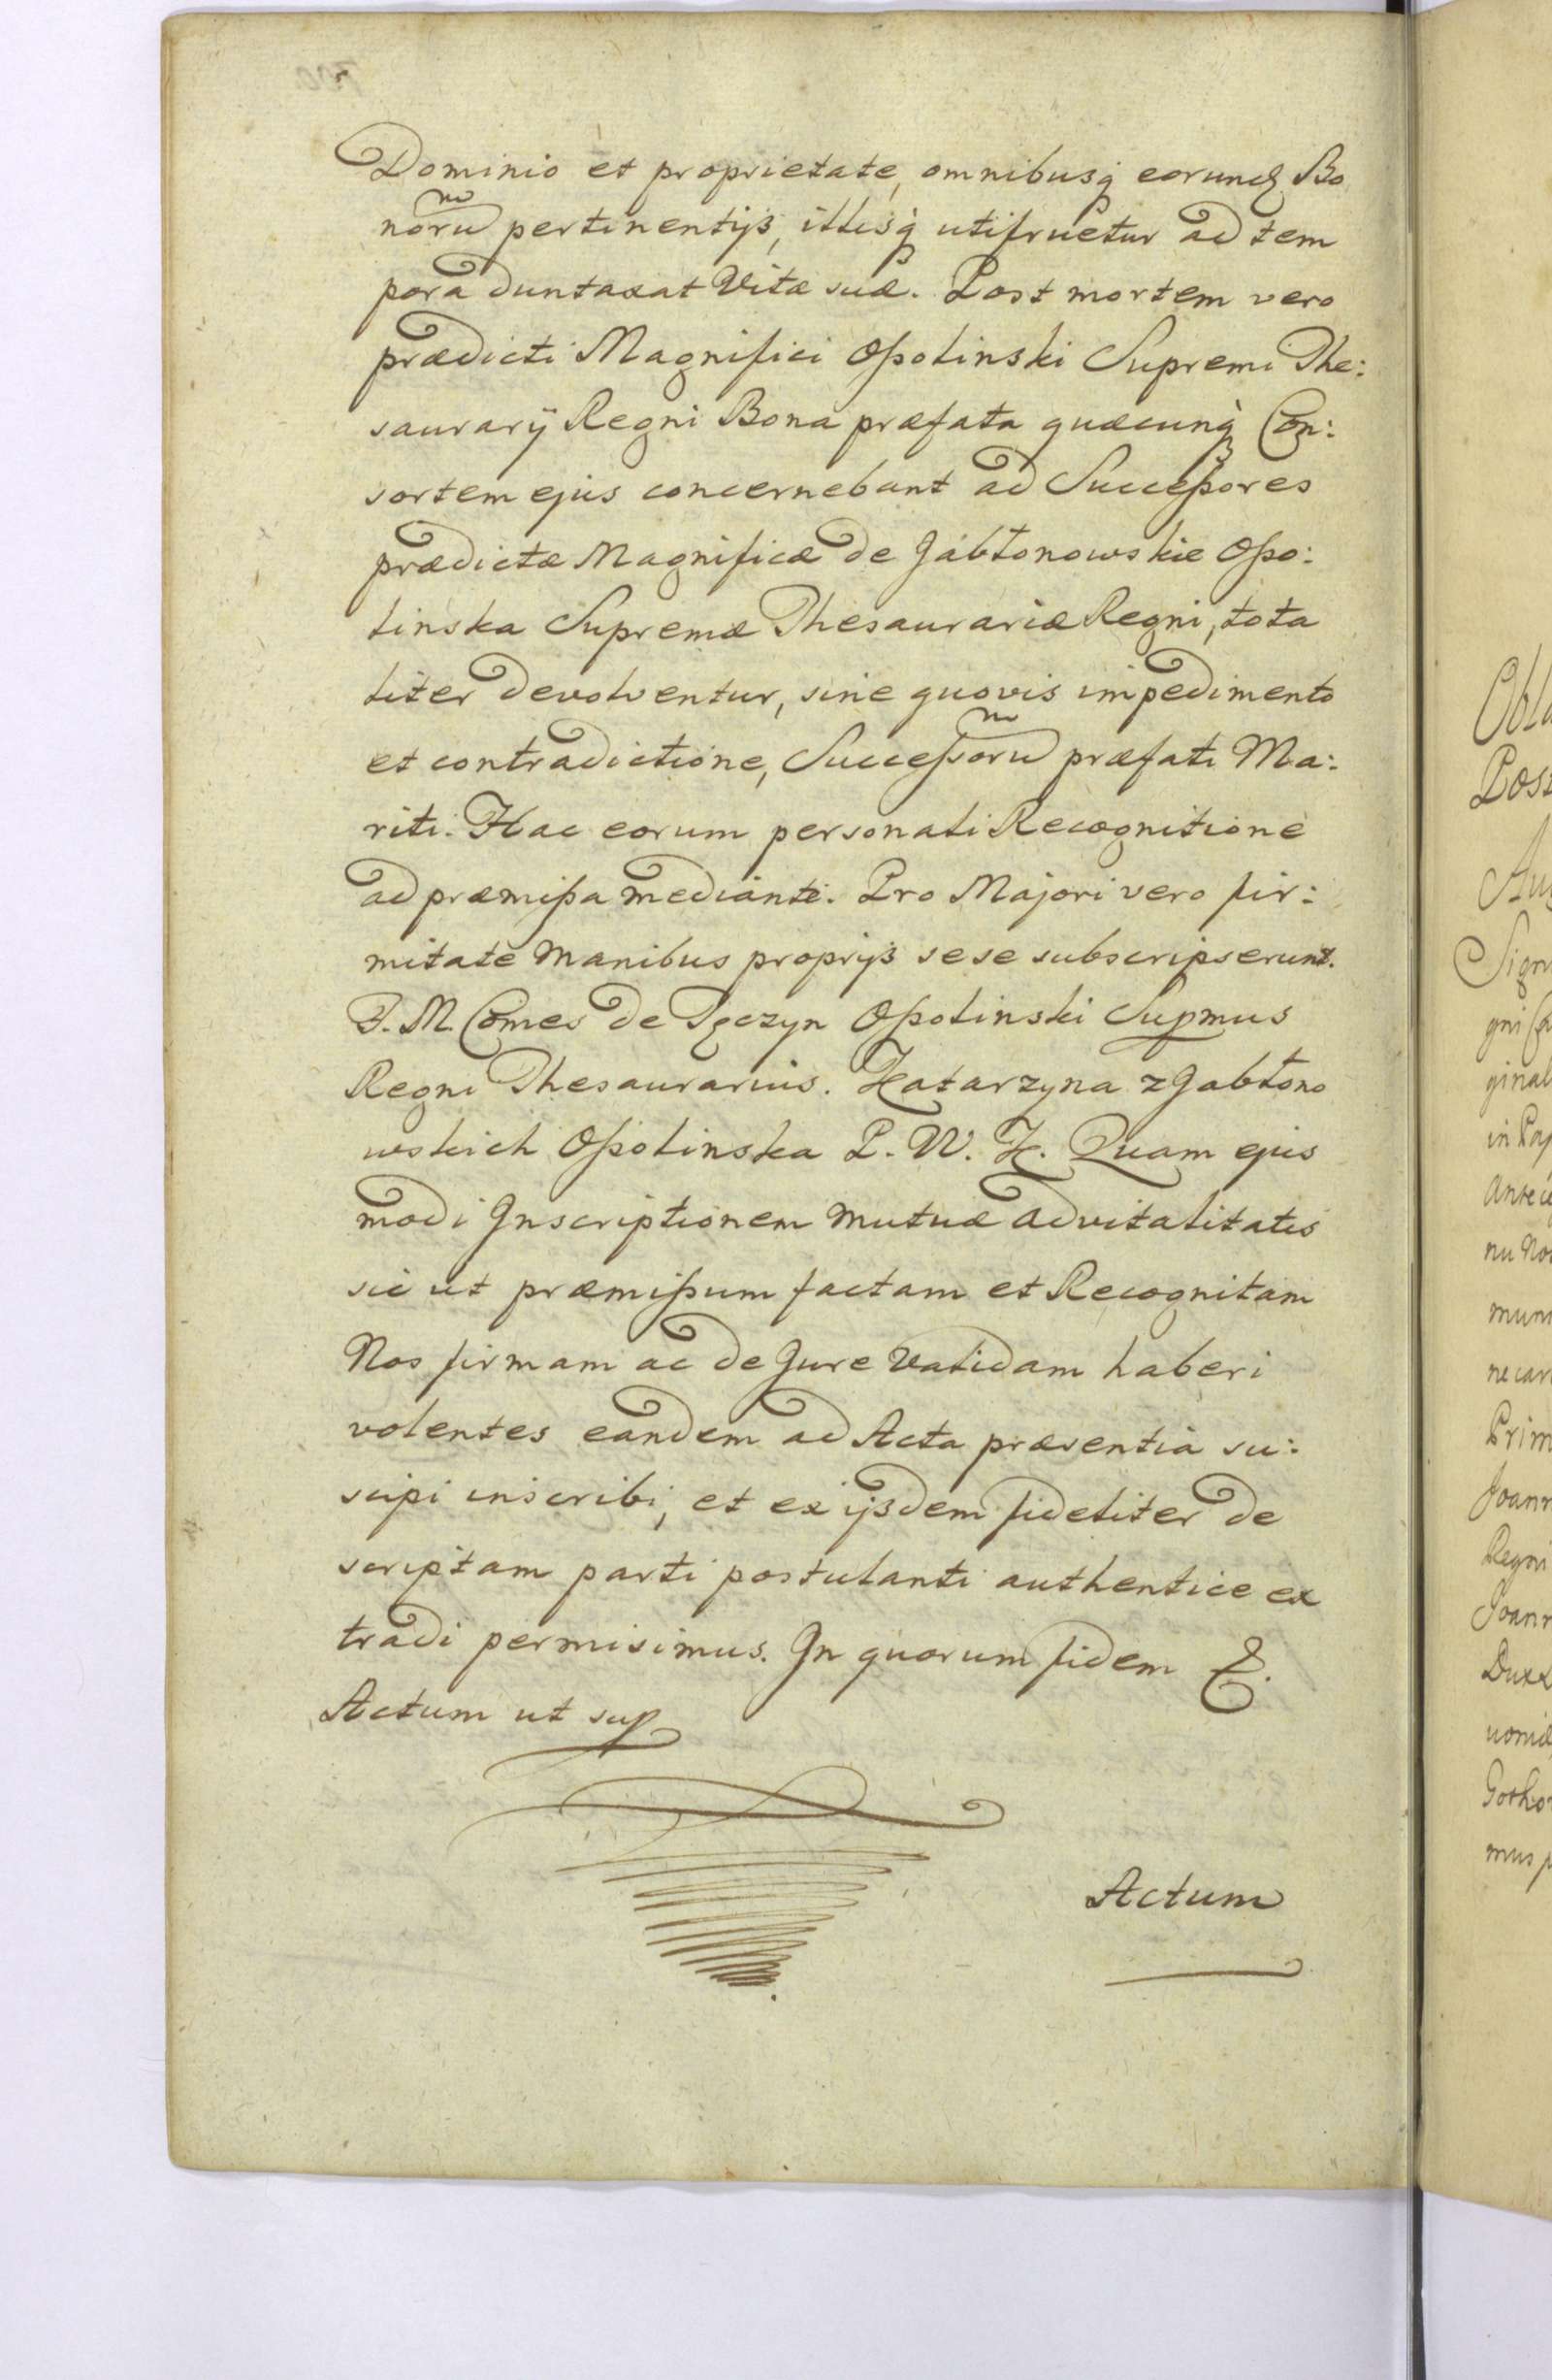 Dominio et proprietate, omnibusq eorund Bo
noru pertinentijs, illisq utifruetur ad tem
pora duntaxat Vitæ suæ. Post mortem vero
prædicti Magnifici Ossolinski Supremi The:
saurarij Regni Bona præfata quæcunq Con:
sortem ejus concernebant ad Successores
prædictæ Magnificæ de Jabłonowskie Osso:
linska Supremæ Thesaurariæ Regni, tota
liter devolventur, sine quovis impedimento
et contradictione, Successoru præfati Ma:
riti. Hac eorum personali Recognitione
ad præmissa mediante. Pro Majori vero fir:
mitate manibus proprijs sese subscripserunt.
F. M. Comes de Tęczyn Ossolinski Supmus
Regni Thesaurarius. Katarzyna z Jabłono
wskich Ossolinska P. W. K. Quam ejus
modi Inscriptionem mutuæ advitalitatis
sic ut præmissum factam et Recognitam
Nos firmam ac de Jure Validam haberi
volentes eandem ad Acta præsentia su:
scipi inscribi, et ex ijsdem fideliter de
scriptam parti postulanti authentice ex
tradi permisimus. In quorum fidem &.
Actum ut sup
Actum